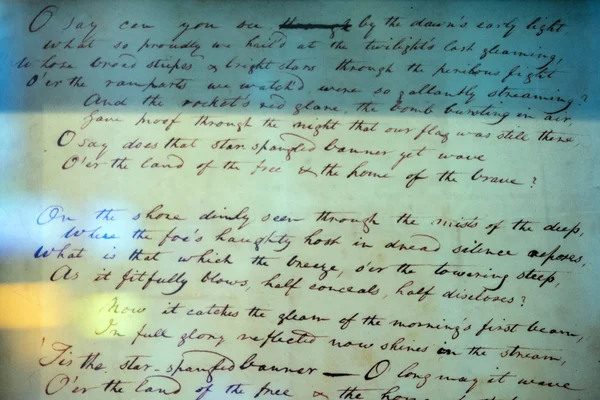 O say can you see through by the dawn's early light
What so proudly we hail'd at the twilight's last gleaming,
Whose broad stripes & bright stars through the perilous fight
O'er the ramparts we watch'd, were so gallantly streaming?
And the rocket's red glare, the bomb bursting in air,
Gave proof through the night that our flag was still there,
O say does that star spangled banner yet wave
O'er the land of the free & the home of the brave?
On the shore dimly seen through the mists of the deep,
Where the foe's haughty host in dread silence reposes,
What is that which the breeze, o'er the towering steep,
As it fitfully blows, half conceals, half discloses?
Now it catches the gleam of the morning's first beam,
In full glory reflected now shines in the stream,
'Tis the star-spangled banner — O long may it wave
O'er the land of the free & the home